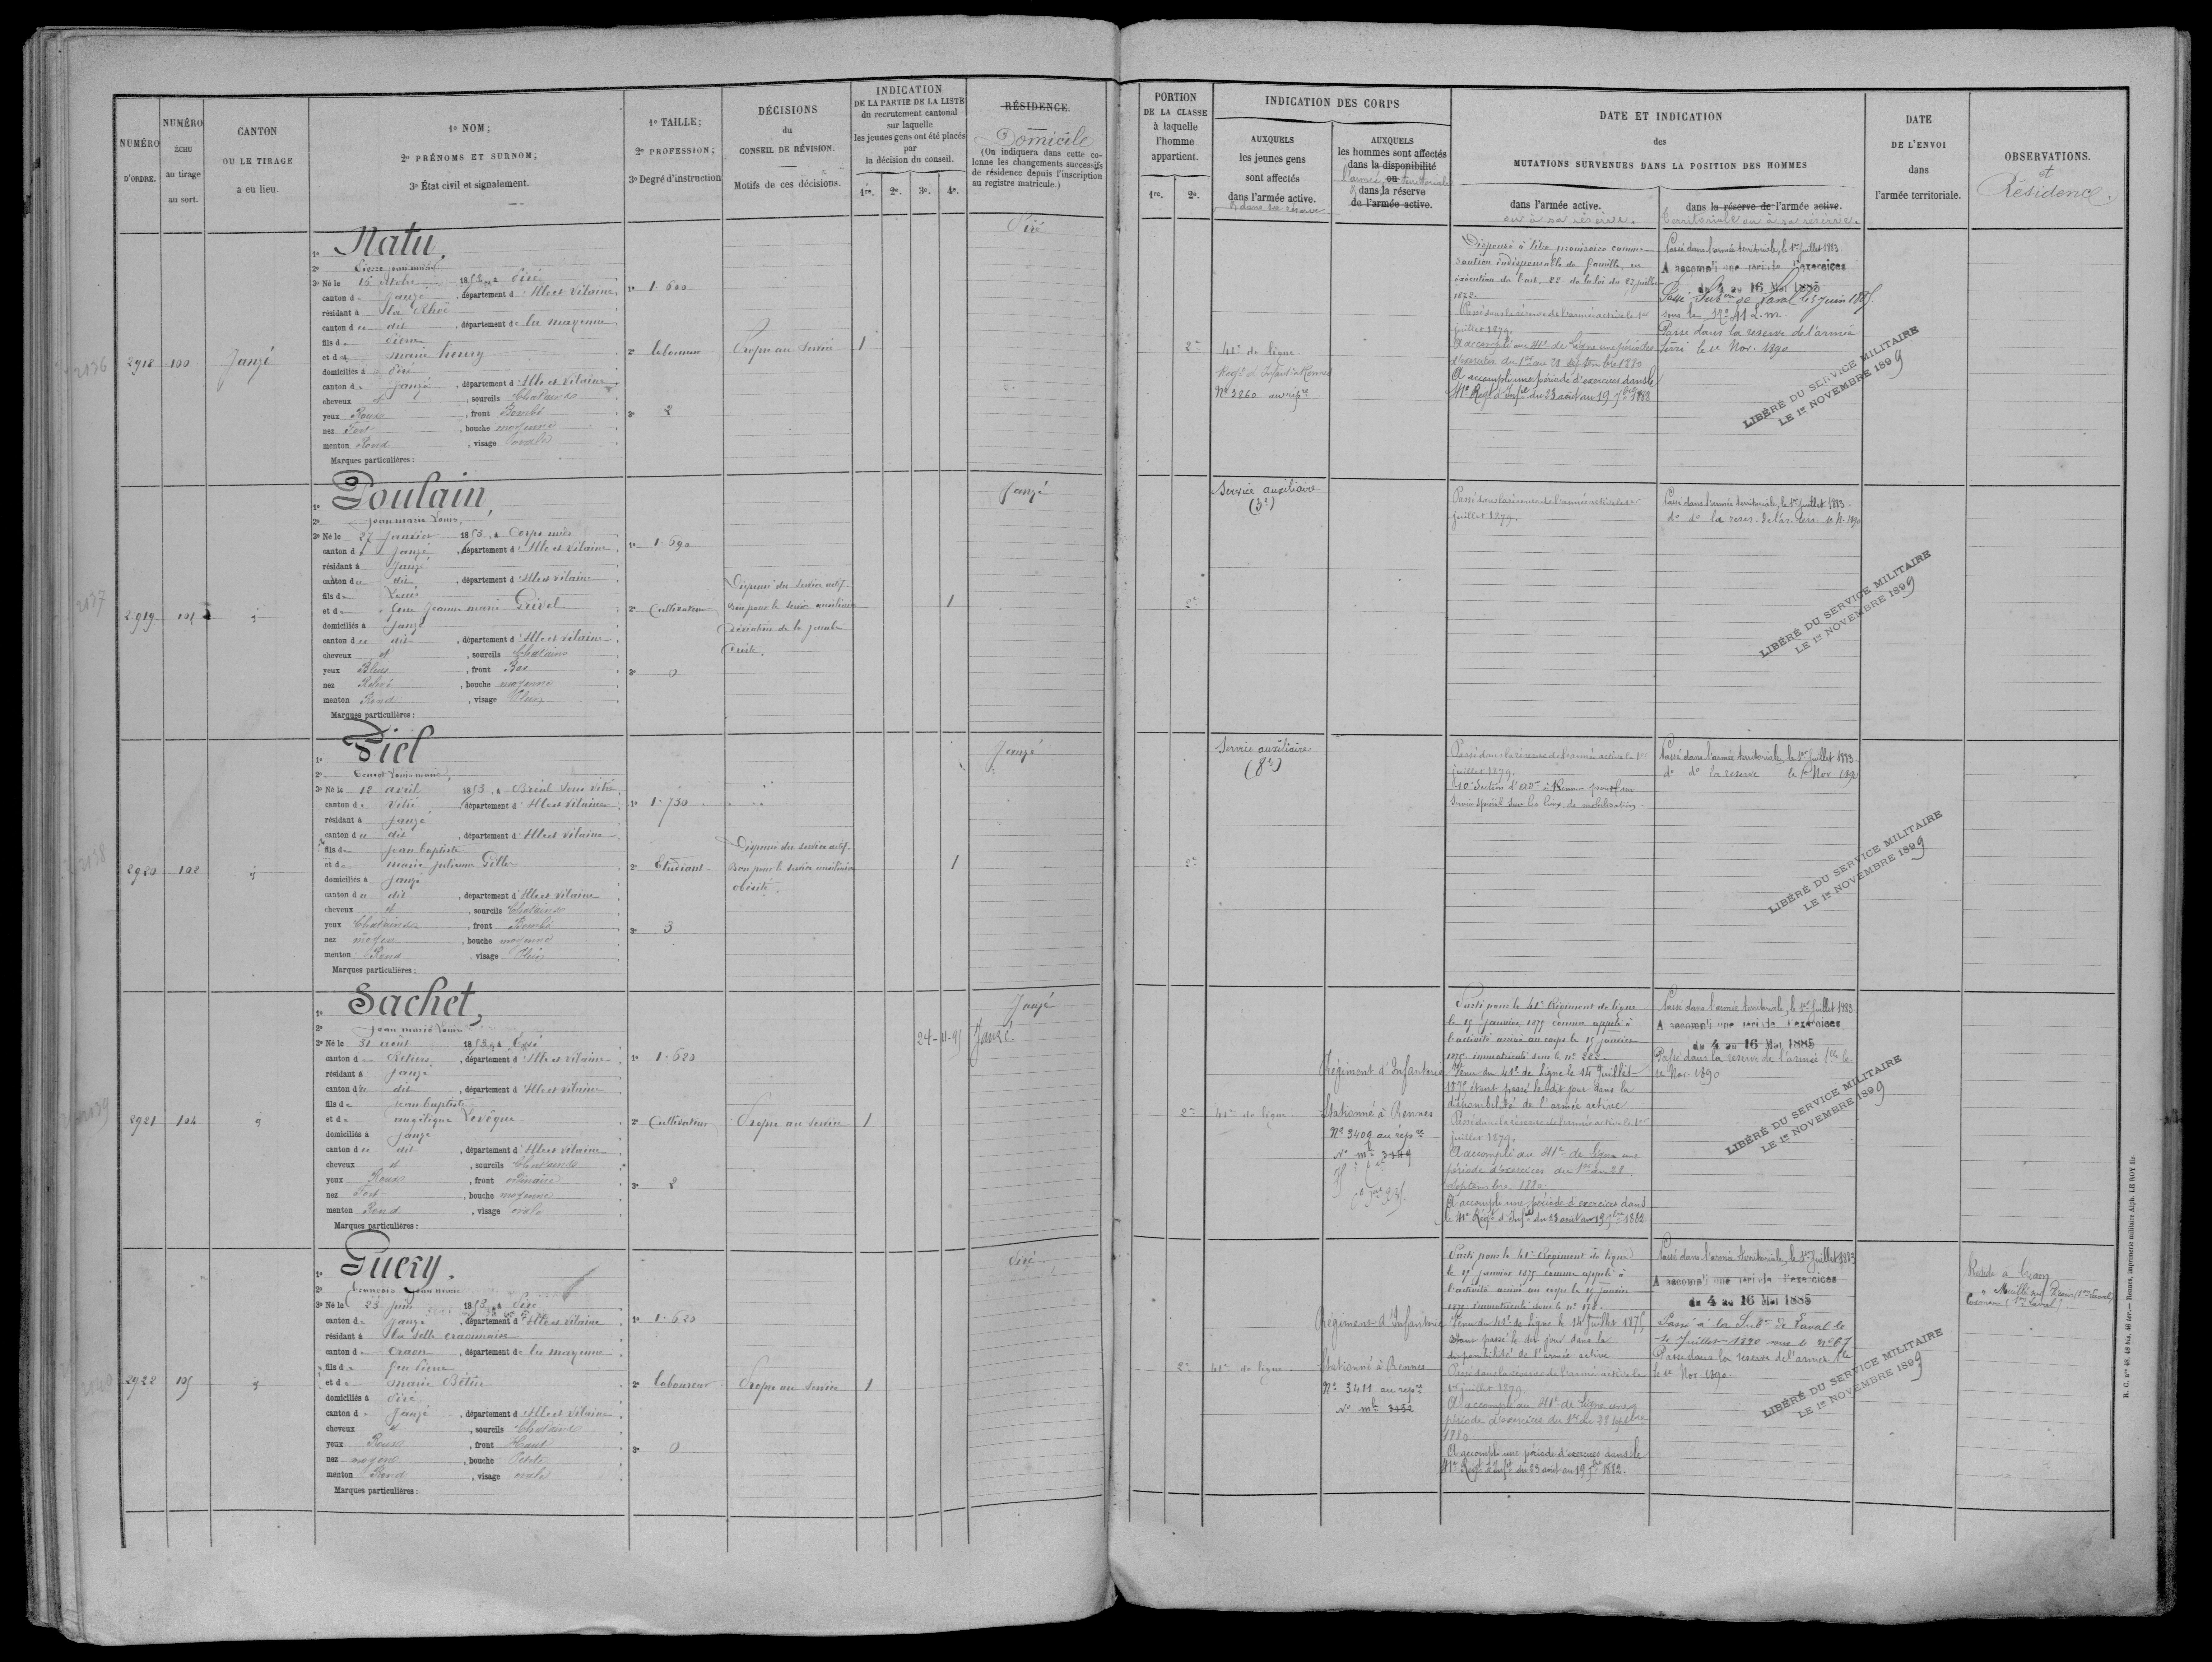 NUMÉRO
D'ORDRE.
NUMÉRO
ÉCHU
au tirage
au sort.
CANTON
OU LE TIRAGE
a eu lieu.
1º NOM;
2º PRÉNOMS ET SURNOM;
3º État civil et signalement.
1º TAILLE;
2º PROFESSION;
3º Degré d'instruction
DÉCISIONS
du
CONSEIL DE RÉVISION.
Motifs de ces décisions.
INDICATION
DE LA PARTIE DE LA LISTE
du recrutement cantonal
sur laquelle
les jeunes gens ont été placés
par
la décision du conseil.
1re. 2e. 3e. 4e.
RÉSIDENCE.
Domicile
(On indiquera dans cette co-
lonne les changements successifs
de résidence depuis l'inscription
au registre matricule.)
PORTION
DE LA CLASSE
à laquelle
l'homme
appartient.
1re. 2e.
INDICATION DES CORPS
AUXQUELS
les jeunes gens
sont affectés
dans l'armée active.
& dans sa réserve
AUXQUELS
les hommes sont affectés
dans la disponibilité
l'armée ou territoriale
& dans la réserve
de l'armée active.
DATE ET INDICATION
des
MUTATIONS SURVENUES DANS LA POSITION DES HOMMES
dans l'armée active.
ou à sa réserve.
dans la réserve de l'armée active.
territoriale ou à sa réserve.
DATE
DE L'ENVOI
dans
l'armée territoriale.
OBSERVATIONS.
et
Résidence.
2136
2918 100 Janzé
1º Natu,
2º Pierre Jean marie
3º Né le 15 octobre 1853, à Piré
canton de Janzé, département d'Ille et Vilaine
résidant à
canton du dit, département de la mayenne
fils de Pierre
et de marie henry
domiciliés à Piré
canton de Janzé, département d'Ille et Vilaine
cheveux et, sourcils Chatains
yeux Roux, front Bombé
nez Fort, bouche moyenne
menton Rond, visage ovale
Marques particulières :
1º 1.600
2º laboureur
3º 2
Propre au service
1
Piré
2e
41e de ligne
Regt d'Infie à Rennes
Nº 3260 au repre
Dispensé à titre provisoire comme
soutien indispensable de famille, en
exécution de l'art. 22 de la loi du 27 juillet
1872.
Passé dans la réserve de l'armée active le 1er
juillet 1879.
A accompli au 41e de ligne une période
d'exercices du 1er au 28 septembre 1880
A accompli une période d'exercices dans le
41e Régt d'Infie du 23 août au 19 7bre 1882
Passé dans l'armée territoriale, le 1er Juillet 1883
A accompli une période d'exercices
du 4 au 16 Mai 1885
Passé Subon de Laval le 5 Juin 1885.
sous le Nº 412 m.
Passe dans la reserve de l'armée
terri le 1er Nov. 1890
LIBÉRÉ DU SERVICE MILITAIRE
LE 1er NOVEMBRE 1899
2137
2919 101 d
1º Poulain,
2º Jean marie Louis,
3º Né le 27 Janvier 1853, à Corps nuds
canton de Janzé, département d'Ille et Vilaine
résidant à Janzé
canton du dit, département d'Ille et vilaine
fils de Louis
et de feue Jeanne marie Grivel
domiciliés à Janzé
canton du dit, département d'Ille et vilaine
cheveux et, sourcils Chatains
yeux Bleus, front Bas
nez Relevé, bouche moyenne
menton Rond, visage Plein
Marques particulières :
1º 1.690
2º Cultivateur
3º 0
Dispensé du service actif.
Bon pour le service auxiliaire
déviation de la jambe
droite.
1
Janzé
2e
Service auxiliaire
(3e)
Passé dans la réserve de l'armée active le 1er
juillet 1879.
Passé dans l'armée territoriale, le 1er Juillet 1883.
do do la reser. de l'ar. terr. 1er N. 1890
LIBÉRÉ DU SERVICE MILITAIRE
LE 1er NOVEMBRE 1899
2138
2920 102 d
1º Piel
2º Ernest Louis marie,
3º Né le 12 avril 1853, à Bréal sous Vitré
canton de Vitré, département d'Ille et Vilaine
résidant à Janzé
canton du dit, département d'Ille et Vilaine
fils de Jean baptiste
et de marie julienne
domiciliés à Janzé
canton du dit, département d'Ille et vilaine
cheveux et, sourcils Chatains
yeux Chatains, front Bombé
nez moyen, bouche moyenne
menton Rond, visage Plein
Marques particulières :
1º 1.730
2º Etudiant
3º 3
Dispensé du service actif.
Bon pour le service auxiliaire
obésité.
1
Janzé
2e
Service auxiliaire
(8e)
Passé dans la réserve de l'armée active le 1er
juillet 1879.
10e Section d'adon à Rennes pour un
service spécial sur les lieux de mobilisation.
Passé dans l'armée territoriale, le 1er Juillet 1883.
do do la reserve le 1er Nov 1890
LIBÉRÉ DU SERVICE MILITAIRE
LE 1er NOVEMBRE 1899
2139
2921 104 d
1º Sachet,
2º Jean marie Louis
3º Né le 31 août 1853, à Essé
canton de Retiers, département d'Ille et Vilaine
résidant à Janzé
canton du dit, département d'Ille et Vilaine
fils de Jean baptiste
et de angélique Levêque
domiciliés à Janzé
canton du dit, département d'Ille et Vilaine
cheveux et, sourcils Chatains
yeux Roux, front ordinaire
nez Fort, bouche moyenne
menton Rond, visage ovale
Marques particulières :
1º 1.620
2º Cultivateur
3º 2
Propre au service
1
Janzé
24-11-95 Janzé.
2e
41e de ligne
Régiment d'Infanterie
Stationné à Rennes
Nº 3409 au repre
Nº mle 3449
Parti pour le 41e Régiment de ligne
le 15 janvier 1875 comme appelé à
l'activité arrivé au corps le 15 janvier
1875 immatriculé sous le nº 222.
Venu du 41e de ligne le 14 Juillet
1875 étant passé le dit jour dans la
disponibilité de l'armée active
Passé dans la réserve de l'armée active le 1er
juillet 1879.
A accompli au 41e de ligne une
période d'exercices du 1er au 28
Septembre 1880.
A accompli une période d'exercices dans
le 41e Régt d'Infie du 23 août au 19 7bre 1882
Passé dans l'armée territoriale, le 1er Juillet 1883
A accompli une période d'exercices
du 4 au 16 Mai 1885
Passé dans la reserve de l'armée tle le
1er Nov. 1890
LIBÉRÉ DU SERVICE MILITAIRE
LE 1er NOVEMBRE 1899
2140
2922 105 d
1º Guery.
2º François Jean marie
3º Né le 23 juin 1853, à Piré
canton de Janzé, département d'Ille et vilaine
résidant à la selle craonnaise
canton de Craon, département de la mayenne
fils de feu Pierre
et de marie
domiciliés à Piré
canton de Janzé, département d'Ille et Vilaine
cheveux et, sourcils Chatains
yeux Roux, front Haut
nez moyen, bouche Petite
menton Rond, visage ovale
Marques particulières :
1º 1.620
2º laboureur
3º 0
Propre au service
1
Piré.
2e
41e de ligne
Régiment d'Infanterie
Stationné à Rennes
Nº 3411 au repre
Nº mle 3452
Parti pour le 41e Régiment de ligne
le 15 janvier 1875 comme appelé à
l'activité arrivé au corps le 15 janvier
1875 immatriculé sous le nº 178.
Venu du 41e de Ligne le 14 Juillet 1875
étant passé le dit jour dans la
disponibilité de l'armée active
Passé dans la réserve de l'armée active le
1er juillet 1879.
A accompli au 41e de ligne une
période d'exercices du 1er au 28 septbre
1880
A accompli une période d'exercices dans le
41e Régt d'Infie du 23 août au 19 7bre 1882.
Passé dans l'armée territoriale, le 1er Juillet 1883
A accompli une période d'exercices
du 4 au 16 Mai 1885
Passé à la Subon de Laval le
Juillet 1890 sous le nº 67
Passe dans la reserve de l'armée tle
le 1er Nov. 1890
LIBÉRÉ DU SERVICE MILITAIRE
LE 1er NOVEMBRE 1899
Réside à Craon
R. C. Nos 40, 48 bis, 48 ter. — Rennes, imprimerie militaire Alph. LE ROY fils.